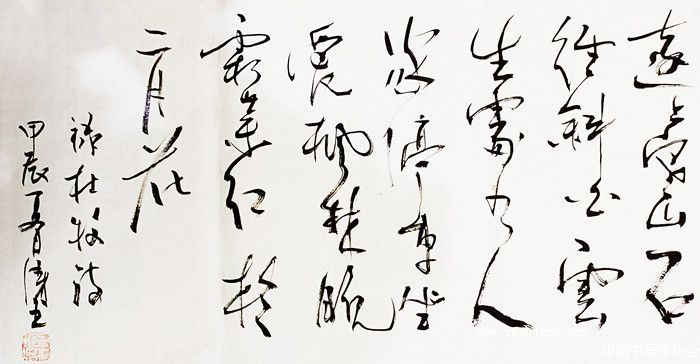 遠上寒山石
徑斜白雲
生處有人
家停車坐
愛楓林晚
霜葉紅於
二月花
錄杜牧詩
甲辰夏
中国书画家协会